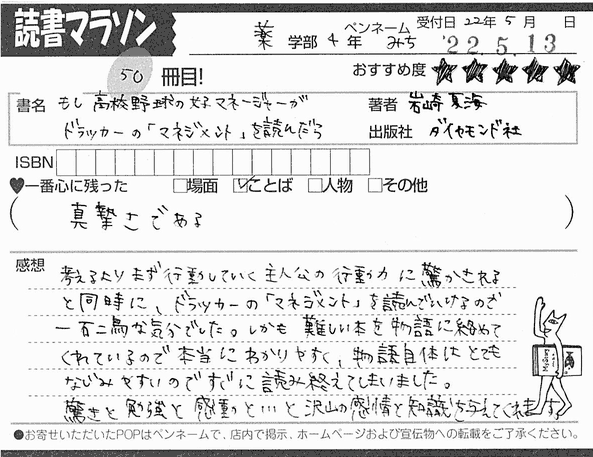 読書マラソン
薬 学部 4 年 ペンネーム みち 受付日 22年 5 月 日
'22.5.13
50 冊目!
おすすめ度 ★★★★★
書名 もし高校野球の女子マネージャーが
ドラッカーの「マネジメント」を読んだら
著者 岩崎夏海
出版社 ダイヤモンド社
ISBN
♥一番心に残った □場面 ☑ことば □人物 □その他
( 真摯さである )
感想
考えるよりまず行動していく主人公の行動力に驚かされる
と同時に、ドラッカーの「マネジメント」を読んでいけるので
一石二鳥な気分でした。しかも難しい本を物語に絡めて
くれているので本当にわかりやすく、物語自体はとても
なじみやすいのですぐに読み終えてしまいました。
驚きと勉強と感動と…と沢山の感情と知識を与えてくれます。
●お寄せいただいたPOPはペンネームで、店内で掲示、ホームページおよび宣伝物への転載をご了承ください。